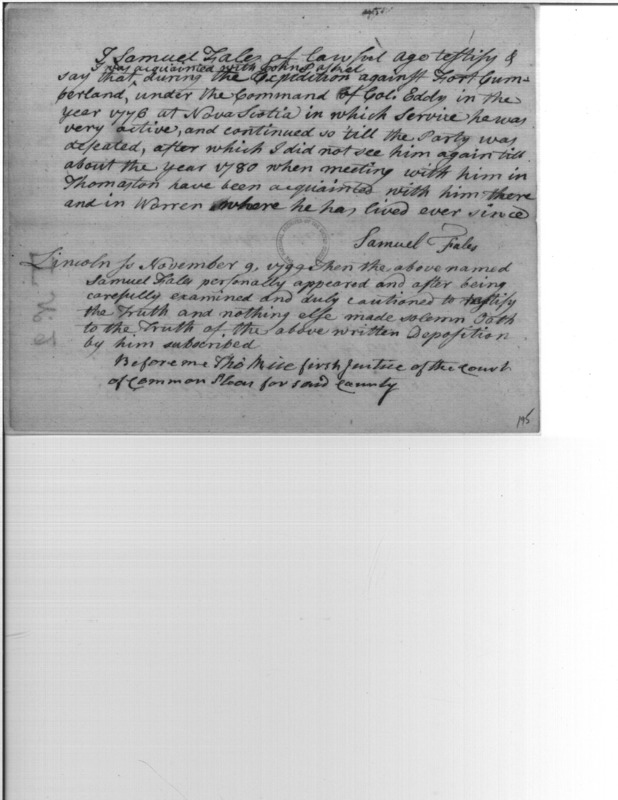 I Samuel Fales of lawful age testify &
I was acquainted with John
say that, during the Expedition against Fort Cum=
berland, under the Command of Col. Eddy in the
year 1776 at Nova Scotia in which Service he was
very active, and continued so 'till the Party was
defeated, after which I did not see him again till
about the year 1780 when meeting with him in
Thomaston have been acquainted with him there
and in Warren where he has lived ever since
Samuel Fales
Lincoln Ss November 9, 1799 then the above named
Samuel Fales personally appeared and after being
carefully examined and duly cautioned to testify
the Truth and nothing else made solemn Oath
to the Truth of the above written Deposition
by him subscribed
Before me first Justice of the Court
of Common Pleas for said County